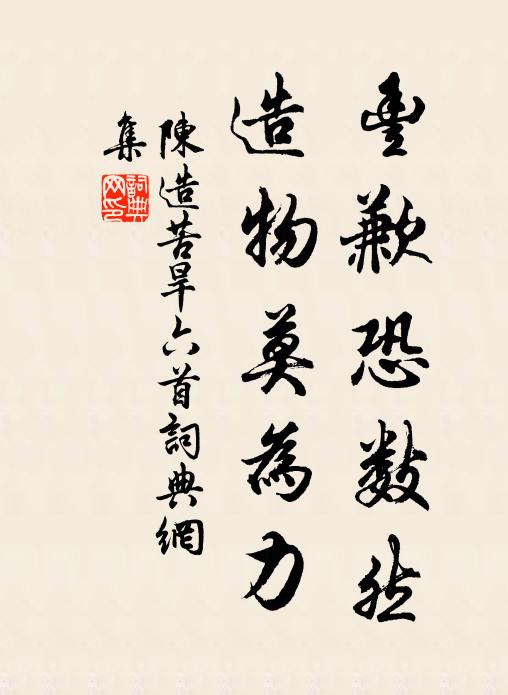 豐歉恐數然
造物莫為力
陳造苦旱六首詞典網
集
詞典網印